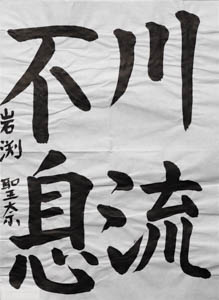 川流
不息
岩渕 聖奈